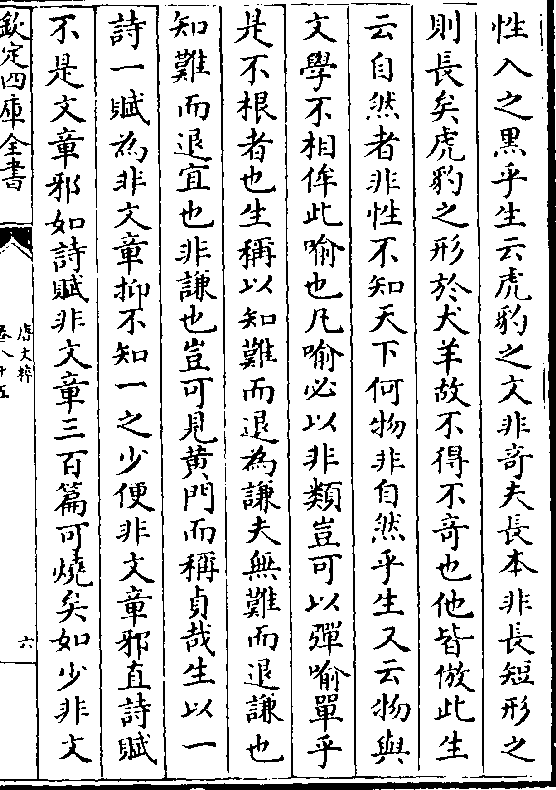 性入之黑乎生云虎豹之文非奇夫長本非長短形之
則長矣虎豹之形於犬羊故不得不奇也他皆倣此生
云自然者非性不知天下何物非自然乎生又云物與
文學不相侔此喻也凡喻必以非類豈可以彈喻單乎
是不根者也生稱以知難而退為謙夫無難而退謙也
知難而退宜也非謙也豈可見黃門而稱貞哉生以一
詩一賦為非文章抑不知一之少便非文章邪直詩賦
不是文章邪如詩賦非文章三百篇可燒矣如少非文
欽定四庫全書
唐文粹
卷八十五
六